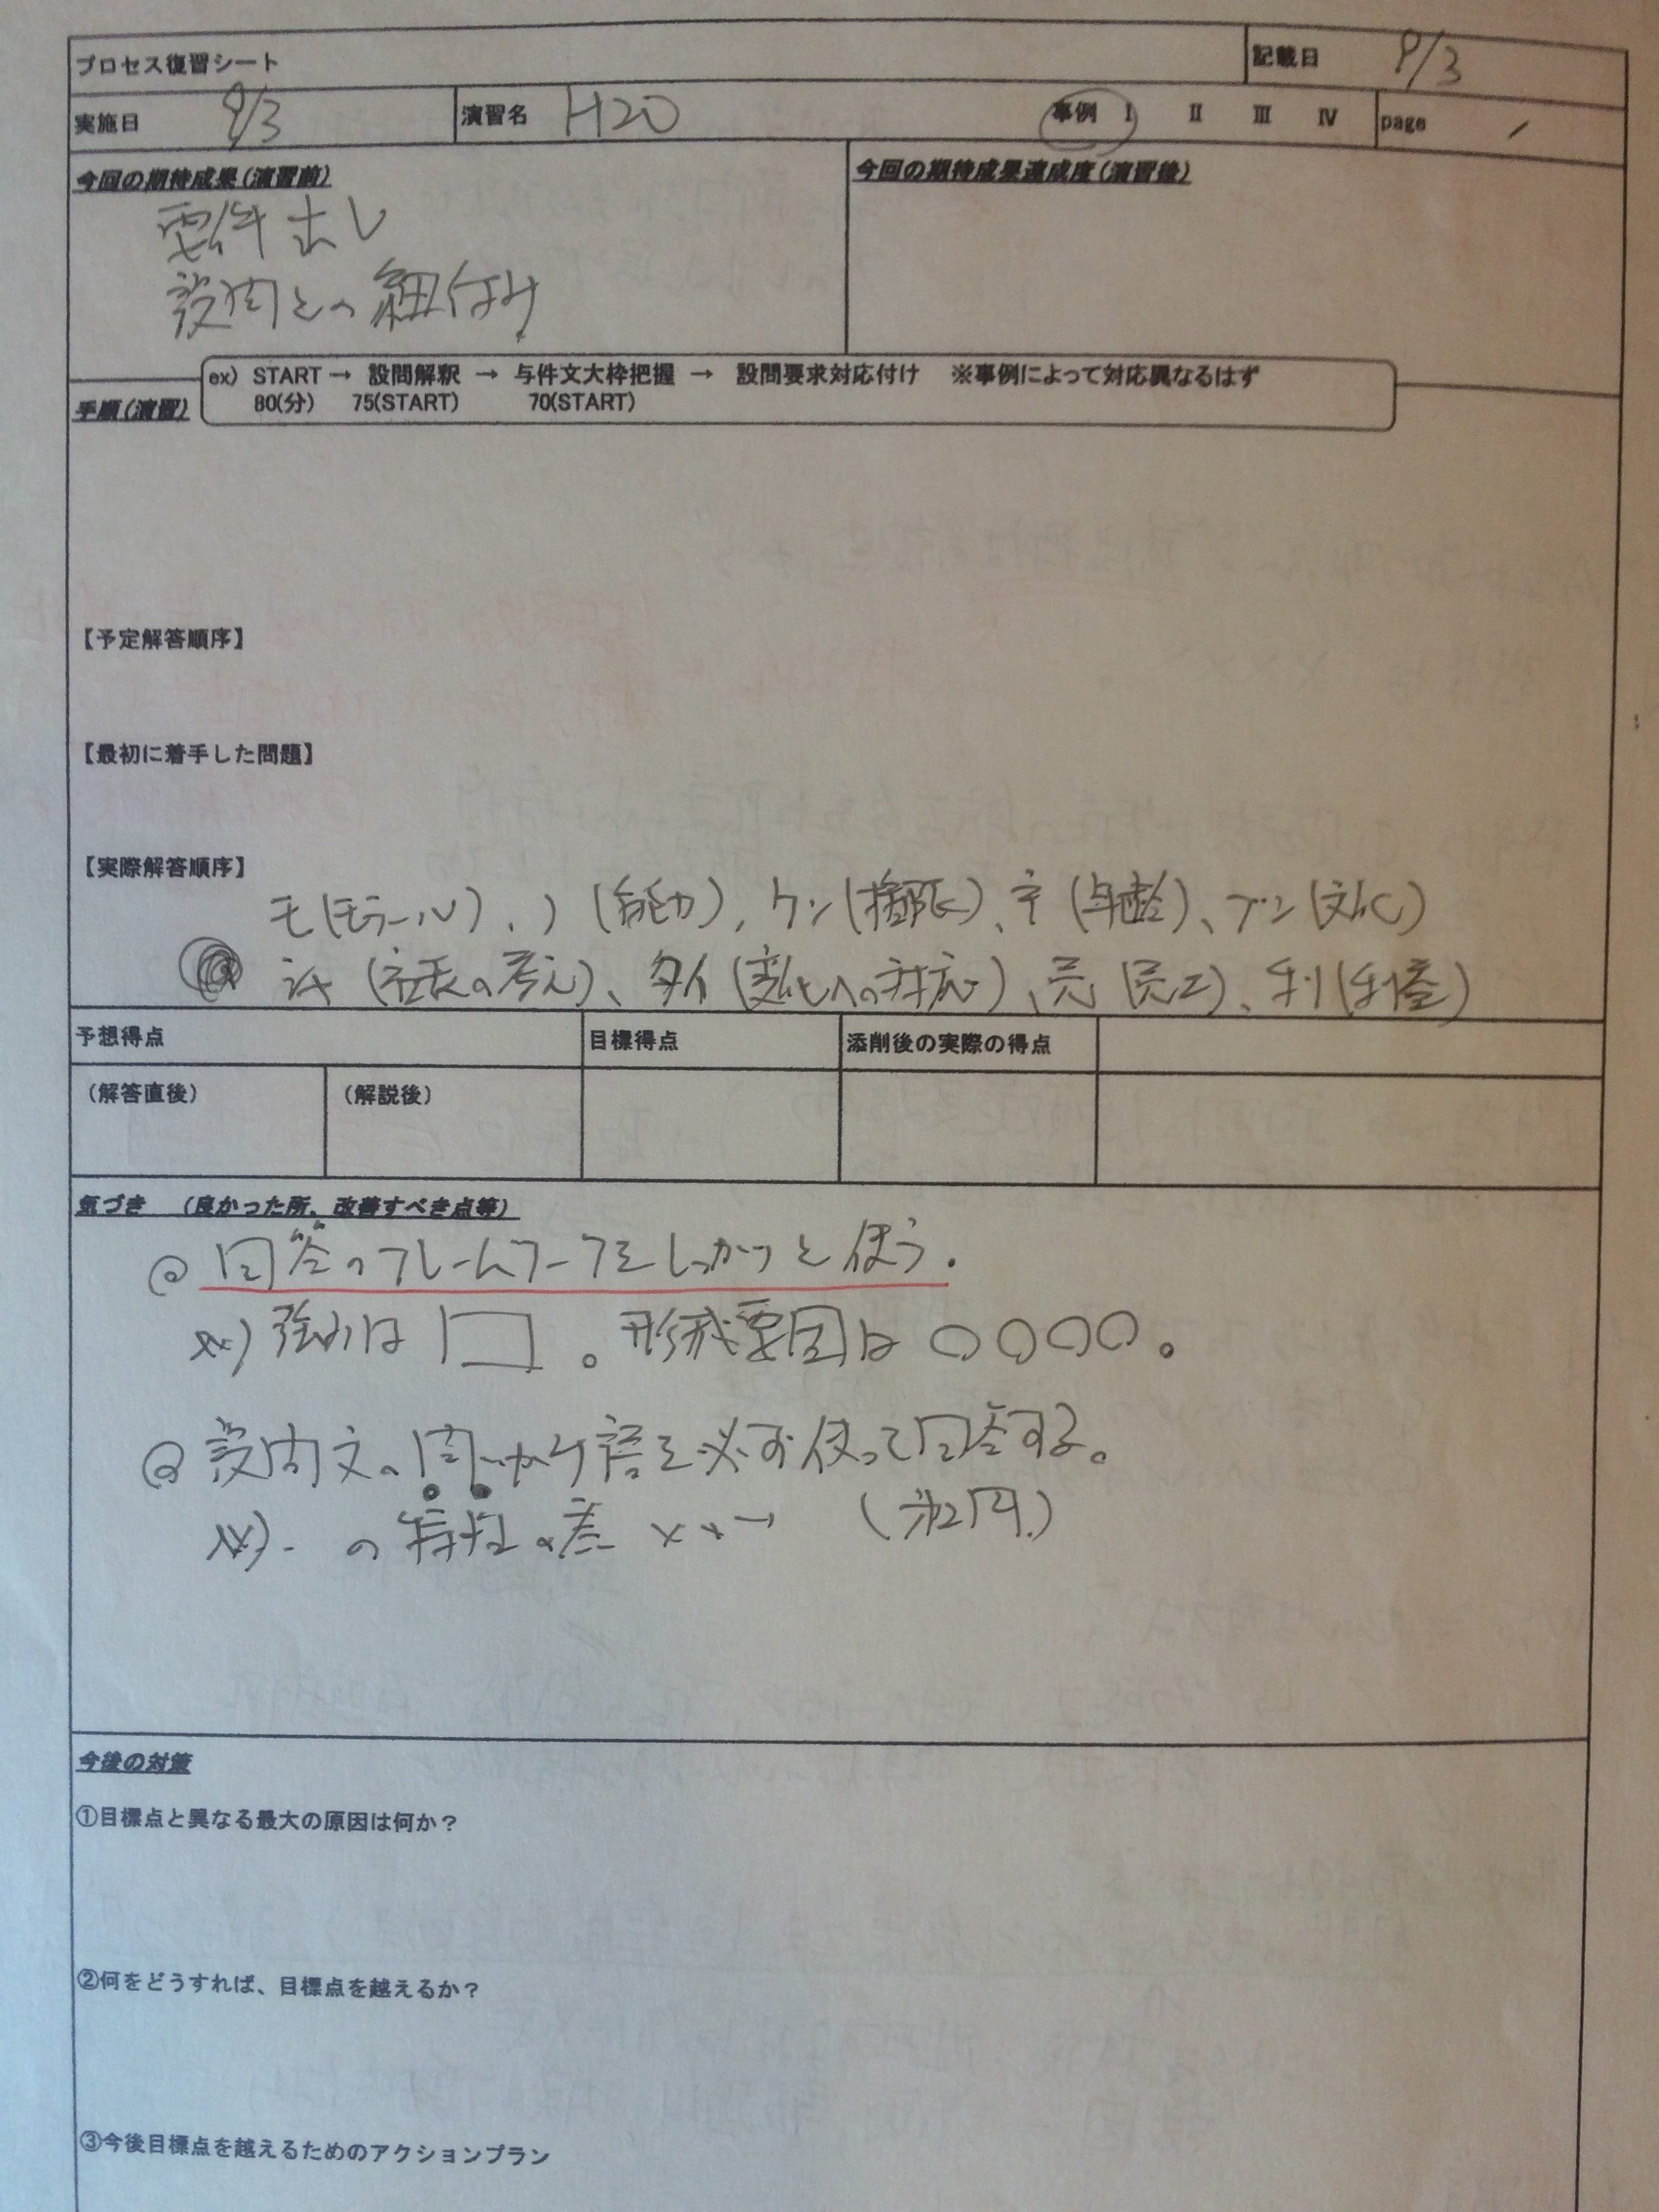 プロセス復習シート 記載日 9/3
実施日 9/3 演習名 H20 事例 Ⅰ Ⅱ Ⅲ Ⅳ page /
今回の期待成果(演習前) 今回の期待成果達成度(演習後)
要件出し
設問との紐付け
ex) START → 設問解釈 → 与件文大枠把握 → 設問要求対応付け ※事例によって対応異なるはず
80(分) 75(START) 70(START)
手順(演習)
【予定解答順序】
【最初に着手した問題】
【実際解答順序】
モ(モラール)、ノ(能力)、ケン(権限)、ネ(年齢)、ブン(文化)
シャ(社長の考え)、タイ(変化への対応)、売(売上)、利(利益)
予想得点 目標得点 添削後の実際の得点
(解答直後) (解説後)
気づき (良かった所、改善すべき点等)
回答のフレームワークをしっかりと使う.
ex) 強みは □ 。形成要因は ○○○○。
設問文の問いかけ語を必ず使って回答する。
ex) の特性の差
今後の対策
①目標点と異なる最大の原因は何か?
②何をどうすれば、目標点を越えるか?
③今後目標点を越えるためのアクションプラン